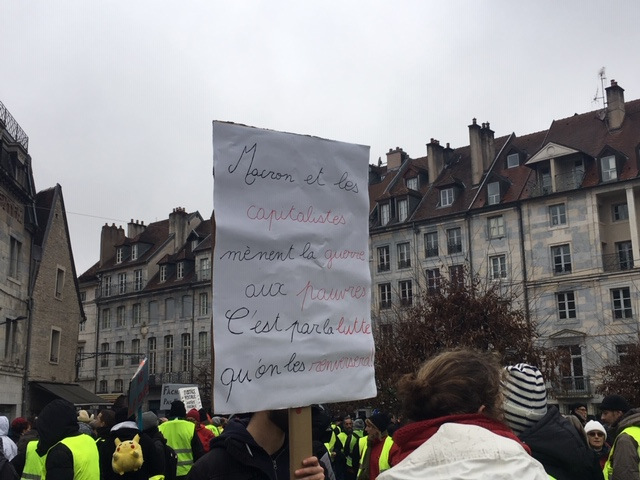 Macron et les
capitalistes
mènent la guerre
aux pauvres
C'est par la lutte
qu'on les renversera